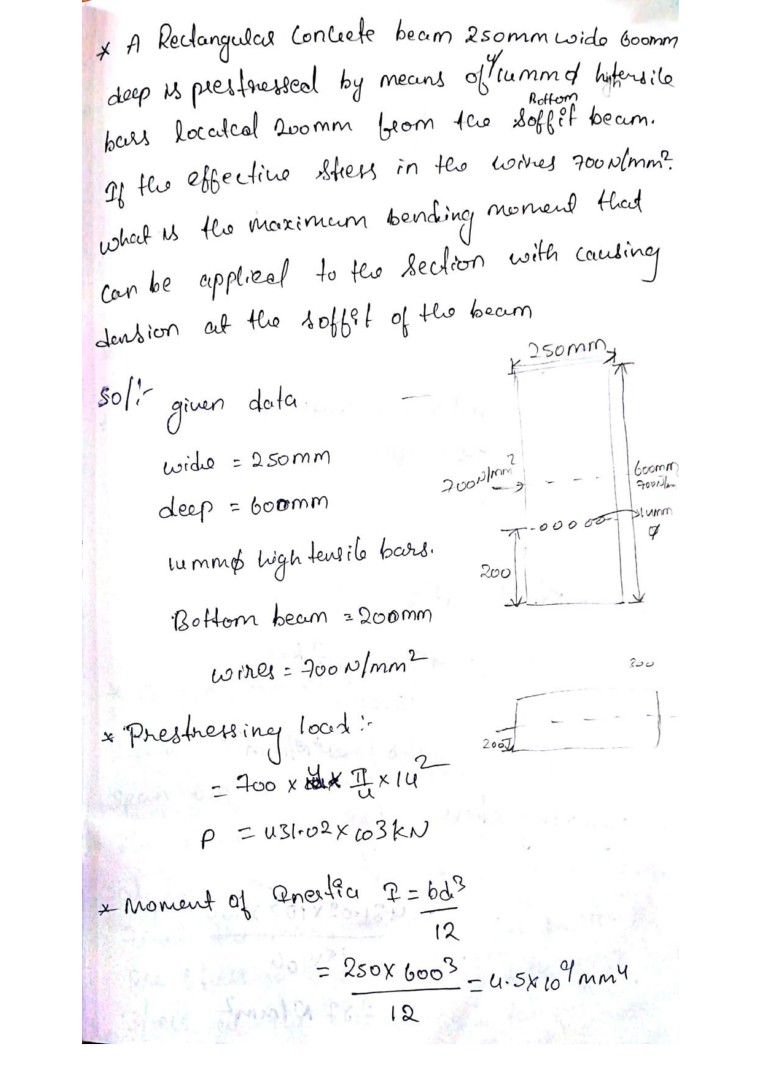 * A Rectangular Concrete beam 250mm wide 600mm
deep is prestressed by means of 4 14mm φ hytensile
Bottom
bars located 200mm from the soffit beam.
If the effective stress in the wires 700N/mm².
what is the maximum bending moment that
can be applied to the section with causing
tension at the soffit of the beam
Sol:-
given data
wide = 250mm
deep = 600mm
14mmφ high tensile bars.
Bottom beam = 200mm
wires = 700 N/mm²
250mm
700N/mm²
600mm
14mm
φ
200
200
* Prestressing load :-
= 700 x 4 x π/4 x 14²
P = 431.02 x 103 kN
* Moment of Inertia I = bd³
12
= 250 x 600³ = 4.5x10⁹ mm4
12